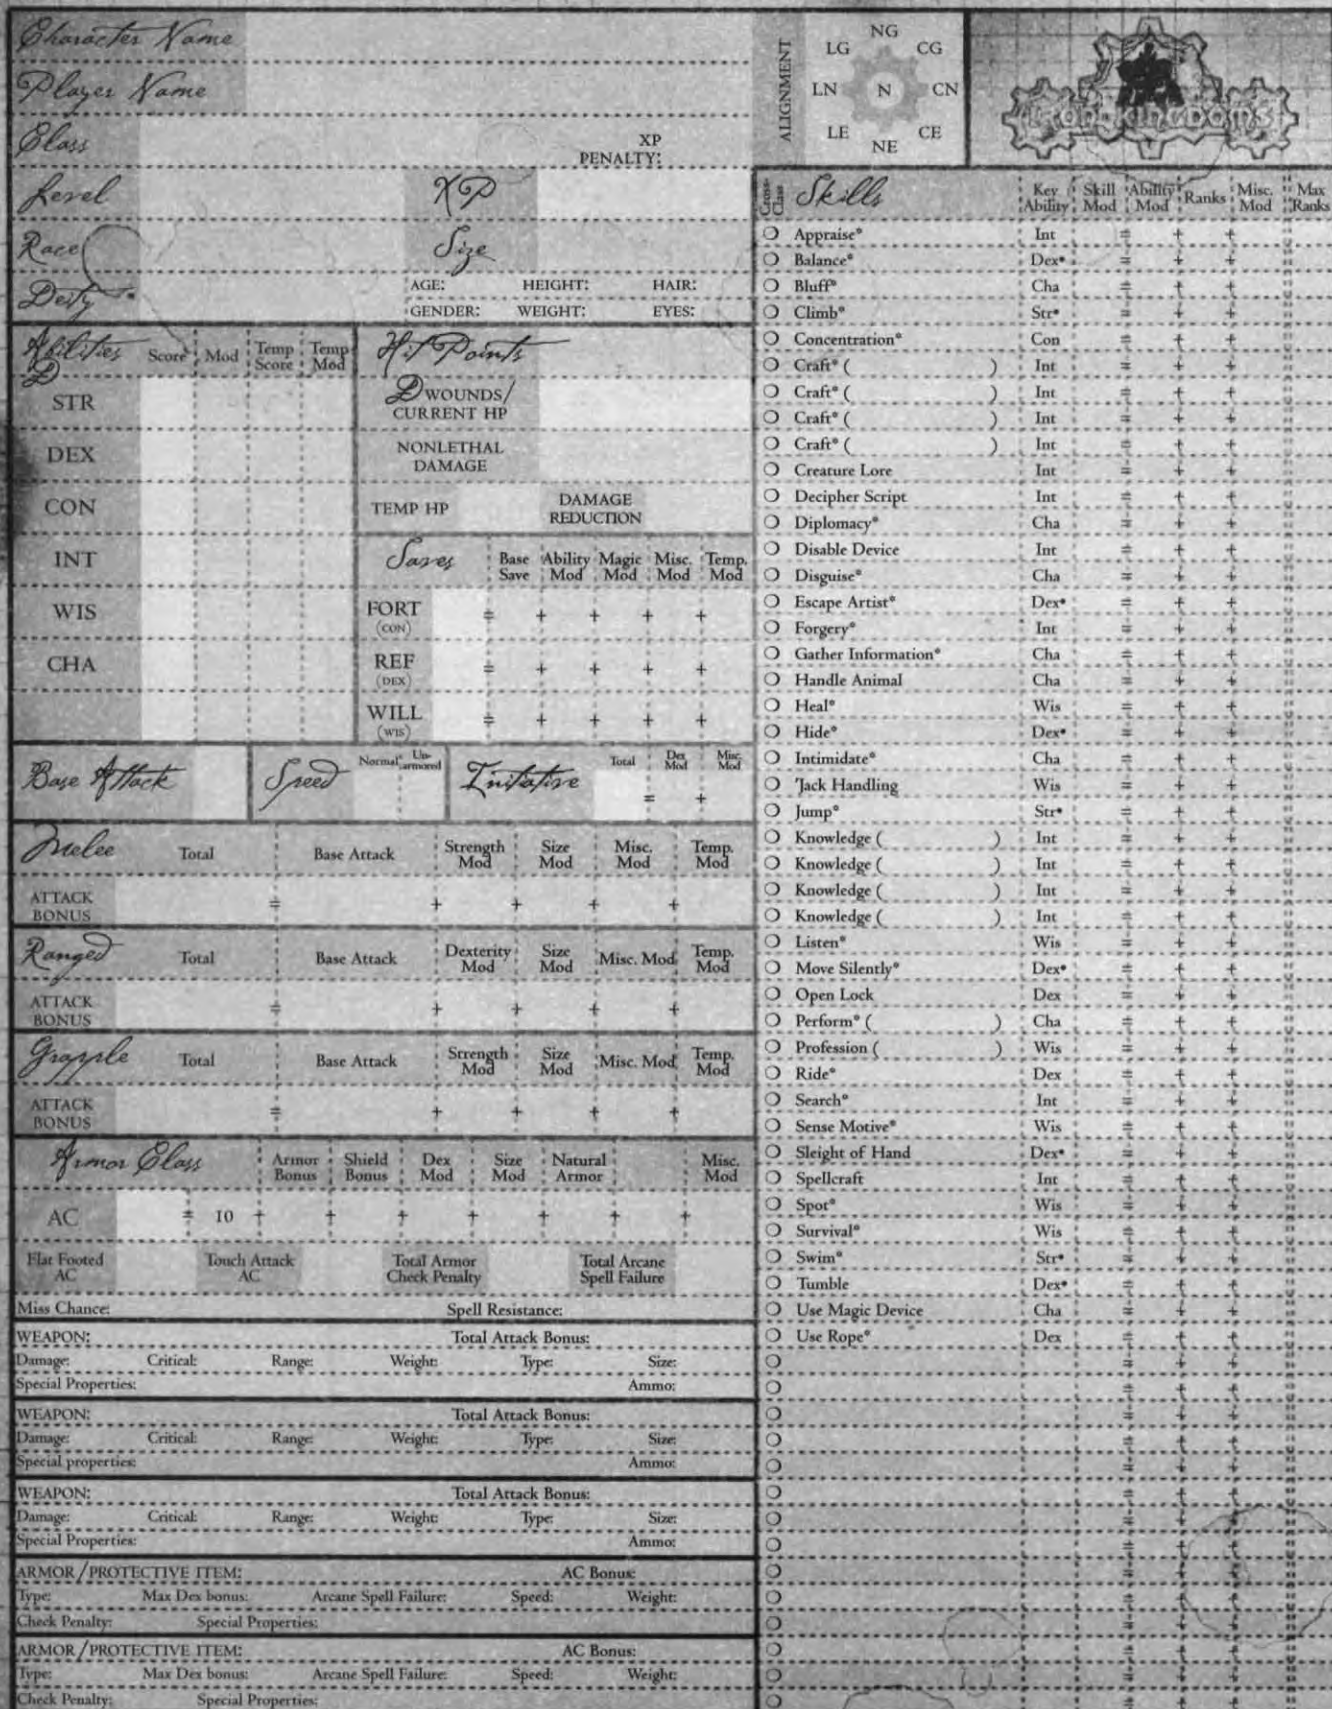 Character Name
Player Name
Class
XP PENALTY:
Level
XP
Race
Size
Deity
AGE: HEIGHT: HAIR:
GENDER: WEIGHT: EYES:
ALIGNMENT
NG
LG CG
LN N CN
LE CE
NE
IRON KINGDOMS
Abilities Score Mod Temp Score Temp Mod
STR
DEX
CON
INT
WIS
CHA
Hit Points
WOUNDS/
CURRENT HP
NONLETHAL
DAMAGE
TEMP HP DAMAGE REDUCTION
Saves Base Save Ability Mod Magic Mod Misc. Mod Temp. Mod
FORT (CON) = + + + +
REF (DEX) = + + + +
WILL (WIS) = + + + +
Base Attack
Speed Normal* Un-armored
Initiative Total Dex Mod Misc. Mod
= +
Melee Total Base Attack Strength Mod Size Mod Misc. Mod Temp. Mod
ATTACK BONUS = + + + +
Ranged Total Base Attack Dexterity Mod Size Mod Misc. Mod Temp. Mod
ATTACK BONUS = + + + +
Grapple Total Base Attack Strength Mod Size Mod Misc. Mod Temp. Mod
ATTACK BONUS = + + + +
Armor Class Armor Bonus Shield Bonus Dex Mod Size Mod Natural Armor Misc. Mod
AC = 10 + + + + + + +
Flat Footed AC Touch Attack AC Total Armor Check Penalty Total Arcane Spell Failure
Miss Chance: Spell Resistance:
WEAPON: Total Attack Bonus:
Damage: Critical: Range: Weight: Type: Size:
Special Properties: Ammo:
WEAPON: Total Attack Bonus:
Damage: Critical: Range: Weight: Type: Size:
Special properties: Ammo:
WEAPON: Total Attack Bonus:
Damage: Critical: Range: Weight: Type: Size:
Special Properties: Ammo:
ARMOR/PROTECTIVE ITEM: AC Bonus:
Type: Max Dex bonus: Arcane Spell Failure: Speed: Weight:
Check Penalty: Special Properties:
ARMOR/PROTECTIVE ITEM: AC Bonus:
Type: Max Dex bonus: Arcane Spell Failure: Speed: Weight:
Check Penalty: Special Properties:
Cross-Class Skills Key Ability Skill Mod Ability Mod Ranks Misc. Mod Max Ranks
Appraise* Int = + +
Balance* Dex• = + +
Bluff* Cha = + +
Climb* Str• = + +
Concentration* Con = + +
Craft* ( ) Int = + +
Craft* ( ) Int = + +
Craft* ( ) Int = + +
Craft* ( ) Int = + +
Creature Lore Int = + +
Decipher Script Int = + +
Diplomacy* Cha = + +
Disable Device Int = + +
Disguise* Cha = + +
Escape Artist* Dex• = + +
Forgery* Int = + +
Gather Information* Cha = + +
Handle Animal Cha = + +
Heal* Wis = + +
Hide* Dex• = + +
Intimidate* Cha = + +
'Jack Handling Wis = + +
Jump* Str• = + +
Knowledge ( ) Int = + +
Knowledge ( ) Int = + +
Knowledge ( ) Int = + +
Knowledge ( ) Int = + +
Listen* Wis = + +
Move Silently* Dex• = + +
Open Lock Dex = + +
Perform* ( ) Cha = + +
Profession ( ) Wis = + +
Ride* Dex = + +
Search* Int = + +
Sense Motive* Wis = + +
Sleight of Hand Dex• = + +
Spellcraft Int = + +
Spot* Wis = + +
Survival* Wis = + +
Swim* Str• = + +
Tumble Dex• = + +
Use Magic Device Cha = + +
Use Rope* Dex = + +
= + +
= + +
= + +
= + +
= + +
= + +
= + +
= + +
= + +
= + +
= + +
= + +
= + +
= + +